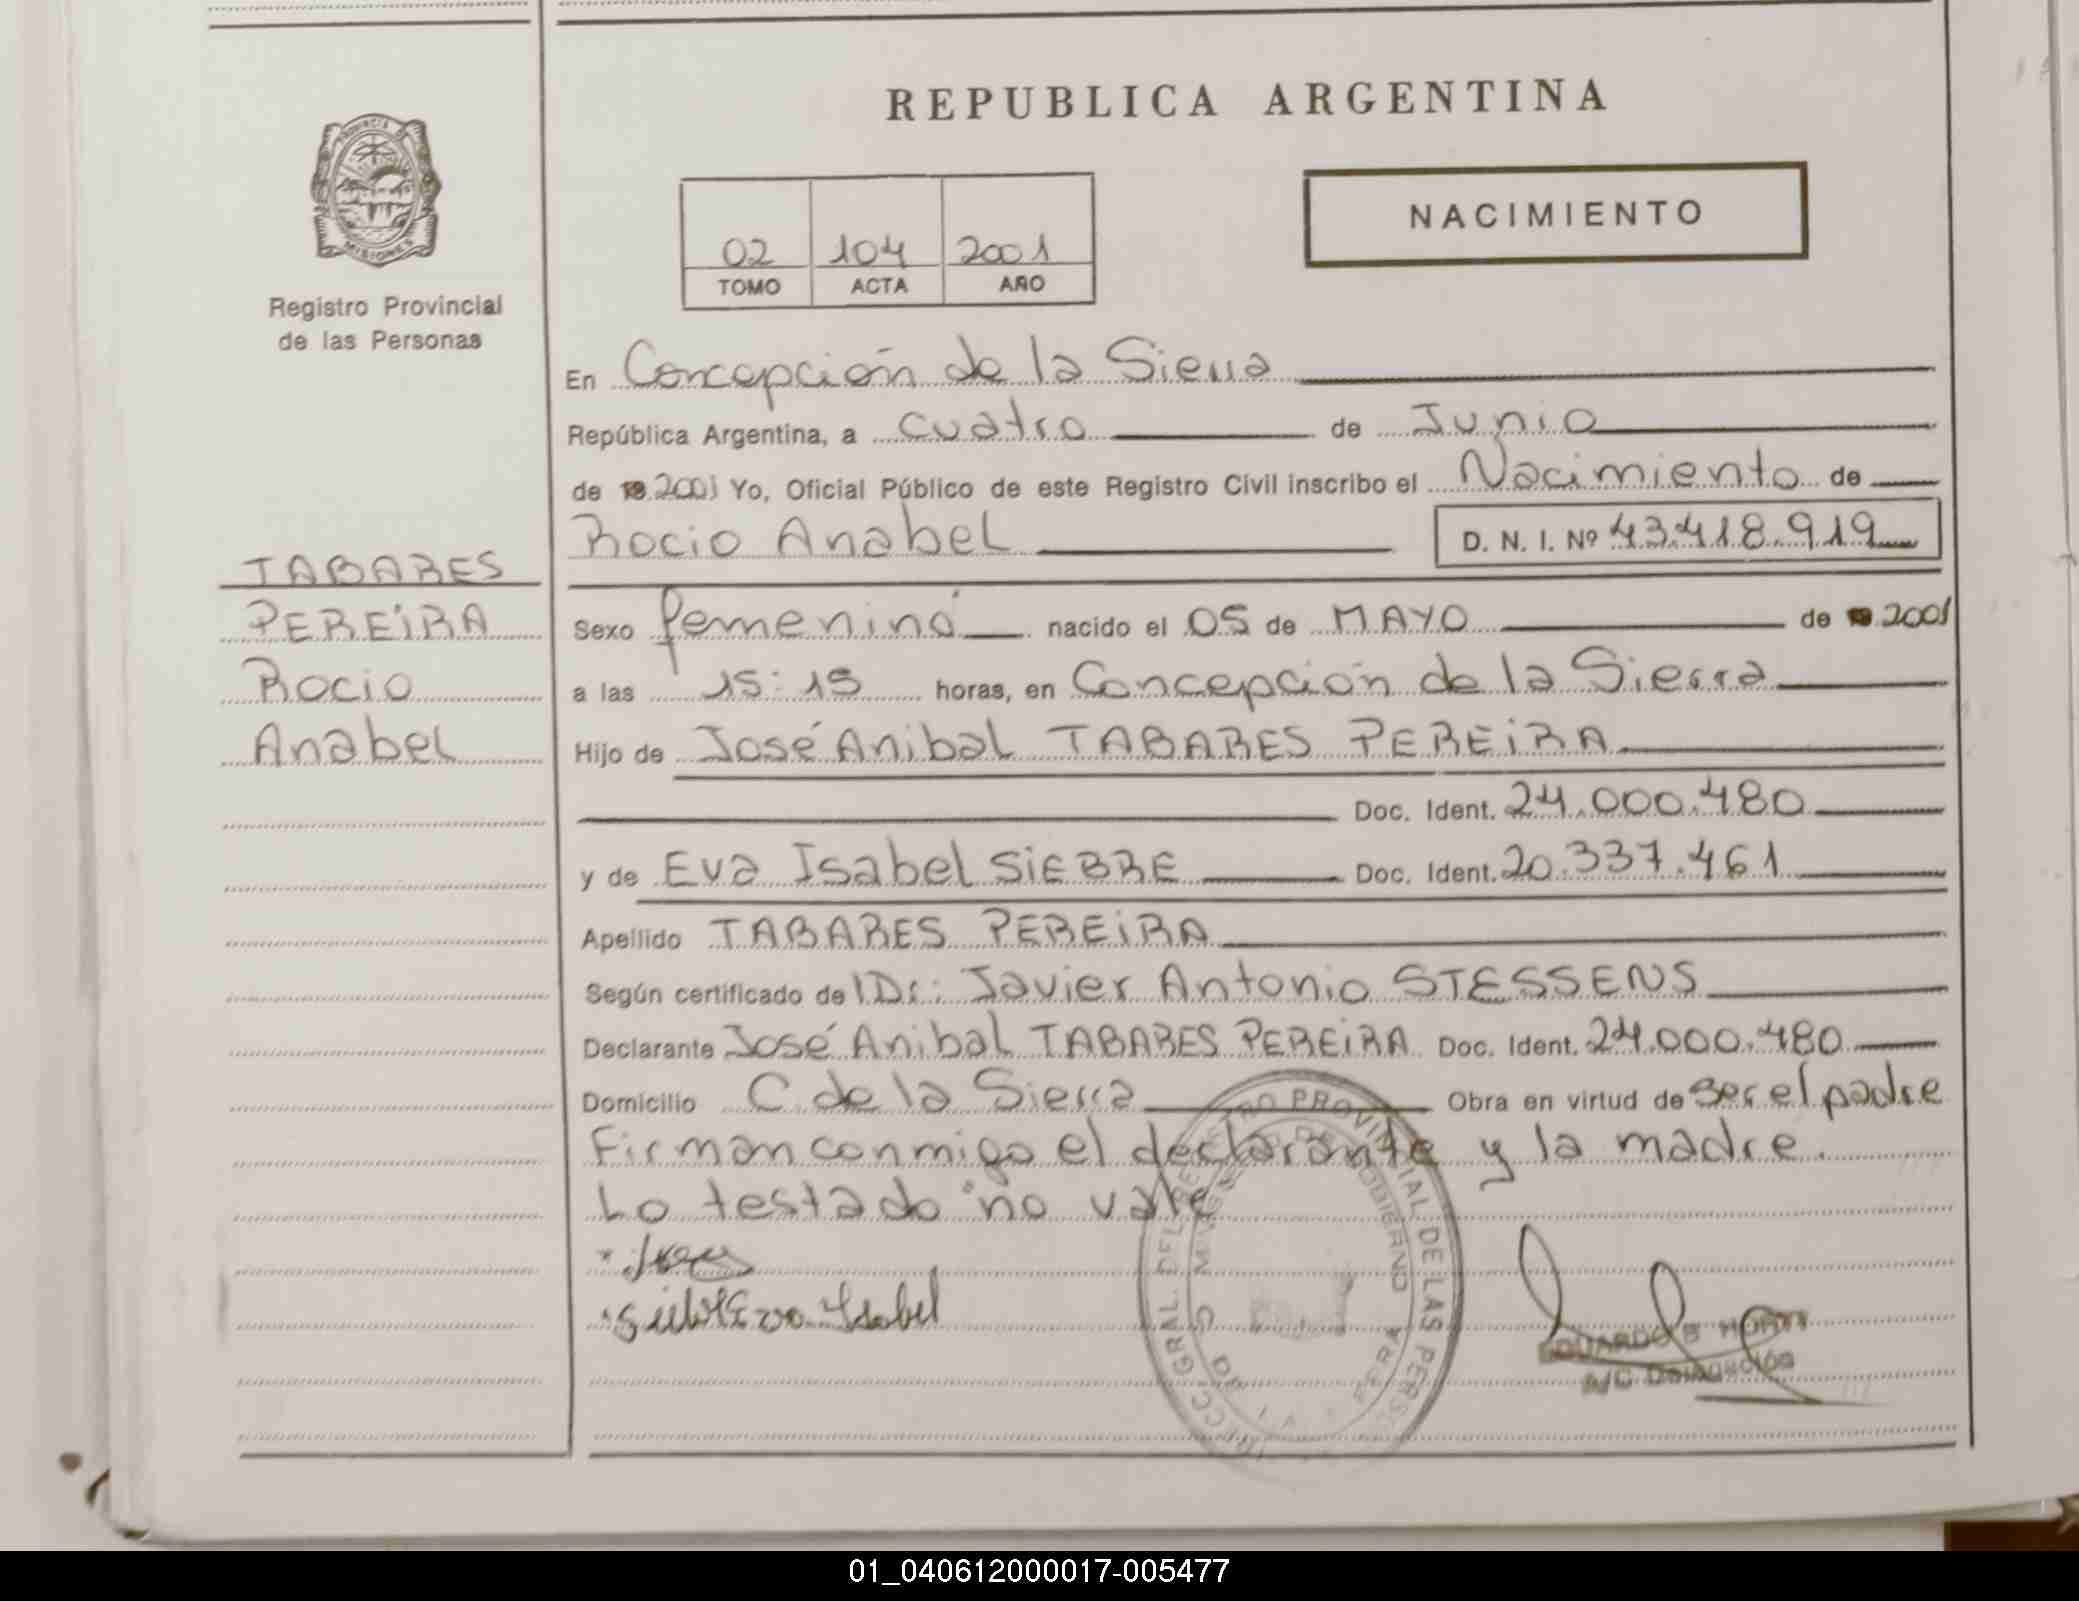 REPUBLICA ARGENTINA
PROVINCIA
MISIONES
Registro Provincial
de las Personas
NACIMIENTO
02 104 2001
TOMO ACTA AÑO
En Concepción de la Sierra
República Argentina, a cuatro de Junio
de 2001 Yo, Oficial Público de este Registro Civil inscribo el Nacimiento de
Rocio Anabel D. N. I. Nº 43.418.919
TABARES
PEREIRA
Rocio
Anabel
Sexo femenino nacido el 05 de MAYO de 2001
a las 15:15 horas, en Concepción de la Sierra
Hijo de José Anibal TABARES PEREIRA
Doc. Ident. 24.000.480
y de Eva Isabel SIERRE Doc. Ident. 20.337.461
Apellido TABARES PEREIRA
Según certificado de Dr: Javier Antonio STESSENS
Declarante José Anibal TABARES PEREIRA Doc. Ident. 24.000.480
Domicilio C. de la Sierra Obra en virtud de ser el padre
Firman conmigo el declarante y la madre.
Lo testado no vale
Eva Isabel
GRAL. DEL REGISTRO PROVINCIAL DE LAS PERS
EDUARDO
A/C Delegación
01_040612000017-005477